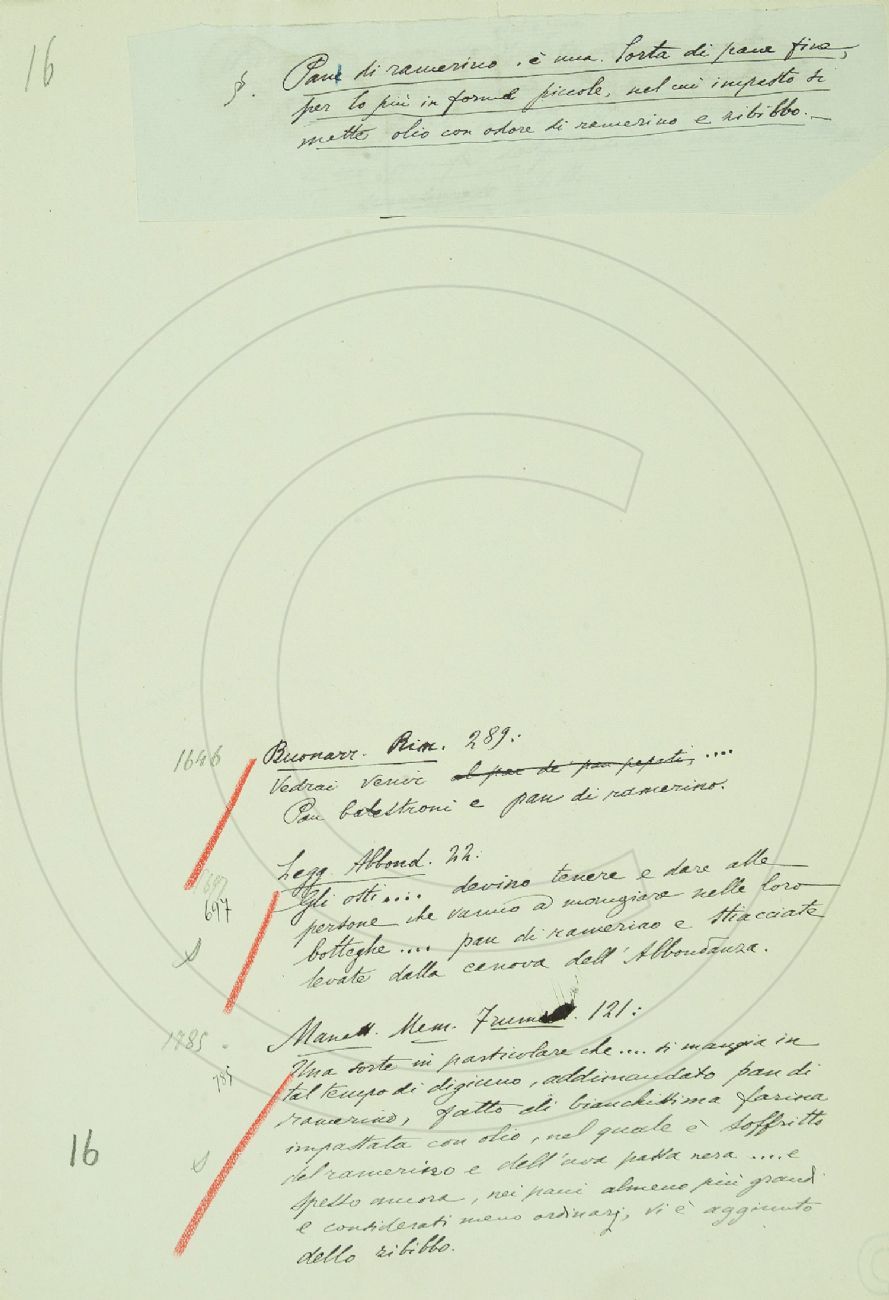 16
§. Pane di ramerino. è una sorta di pane fine,
per lo più in forme piccole, nel cui impasto si
mette olio con odore di ramerino e zibibbo.
1646
Buonarr. Rim. 289:
Vedrai venir al pan de' pan pepati, ....
Pan balestroni e pan di ramerino.
Legg. Abbond. 22:
1697
697
Gli osti .... devino tenere e dare alle
persone che vanno a mangiare nelle loro
botteghe .... pan di ramerino e stiacciate
levate dalla canova dell'Abbondanza.
1785.
Manett. Mem. Frum. 121:
785
Una sorte in particolare che .... si mangia in
tal tempo di digiuno, addimandato pan di
ramerino, fatto di bianchissima farina
impastata con olio, nel quale è soffritto
16
del ramerino e dell'uva passa nera .... e
spesso ancora, nei pani almeno più grandi
e considerati meno ordinarj, vi è aggiunto
dello zibibbo.